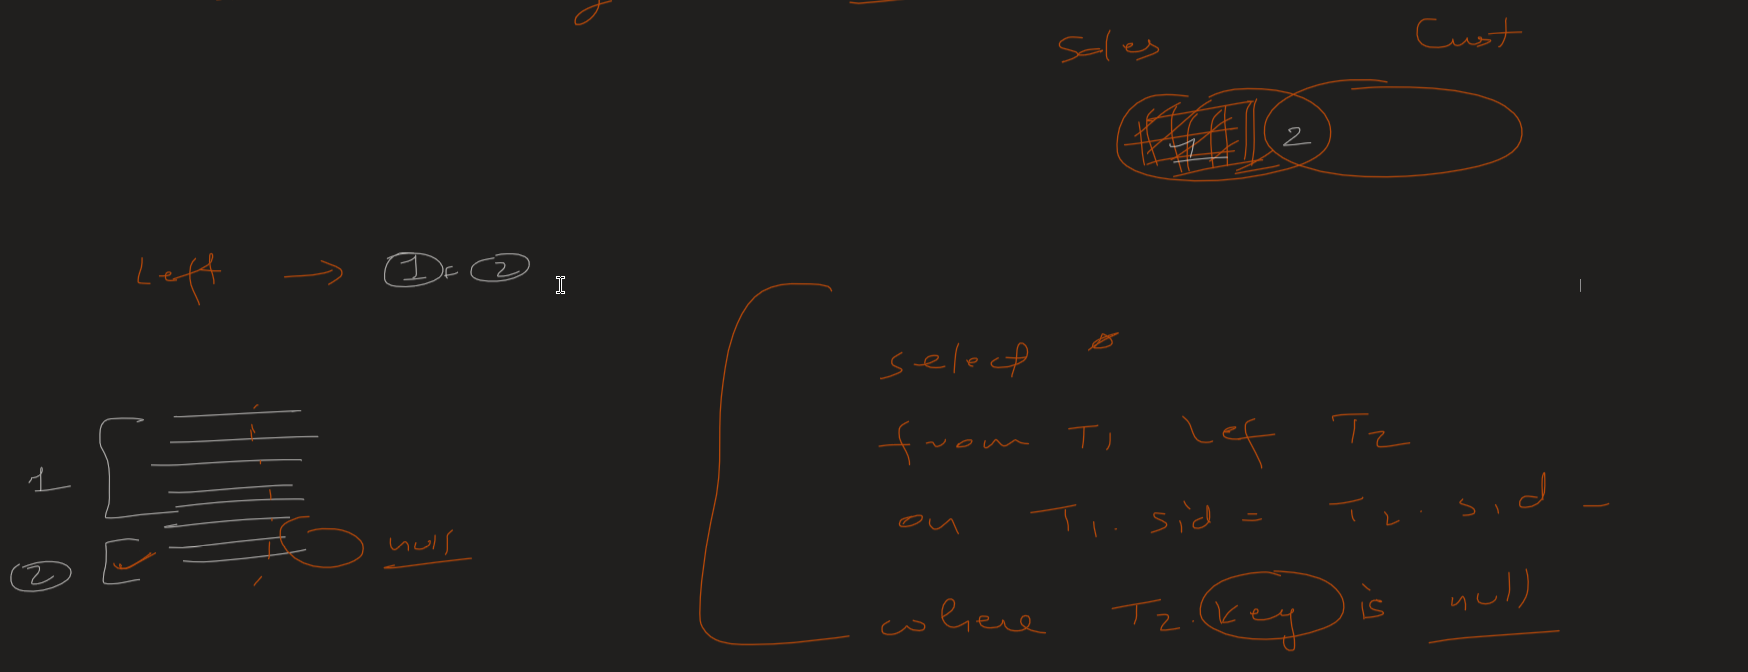 Sales Cust
1 2
Left → 1 + 2
select *
from T1 Lef T2
on T1. sid = T2. sid -
1
null
2
where T2. key is null